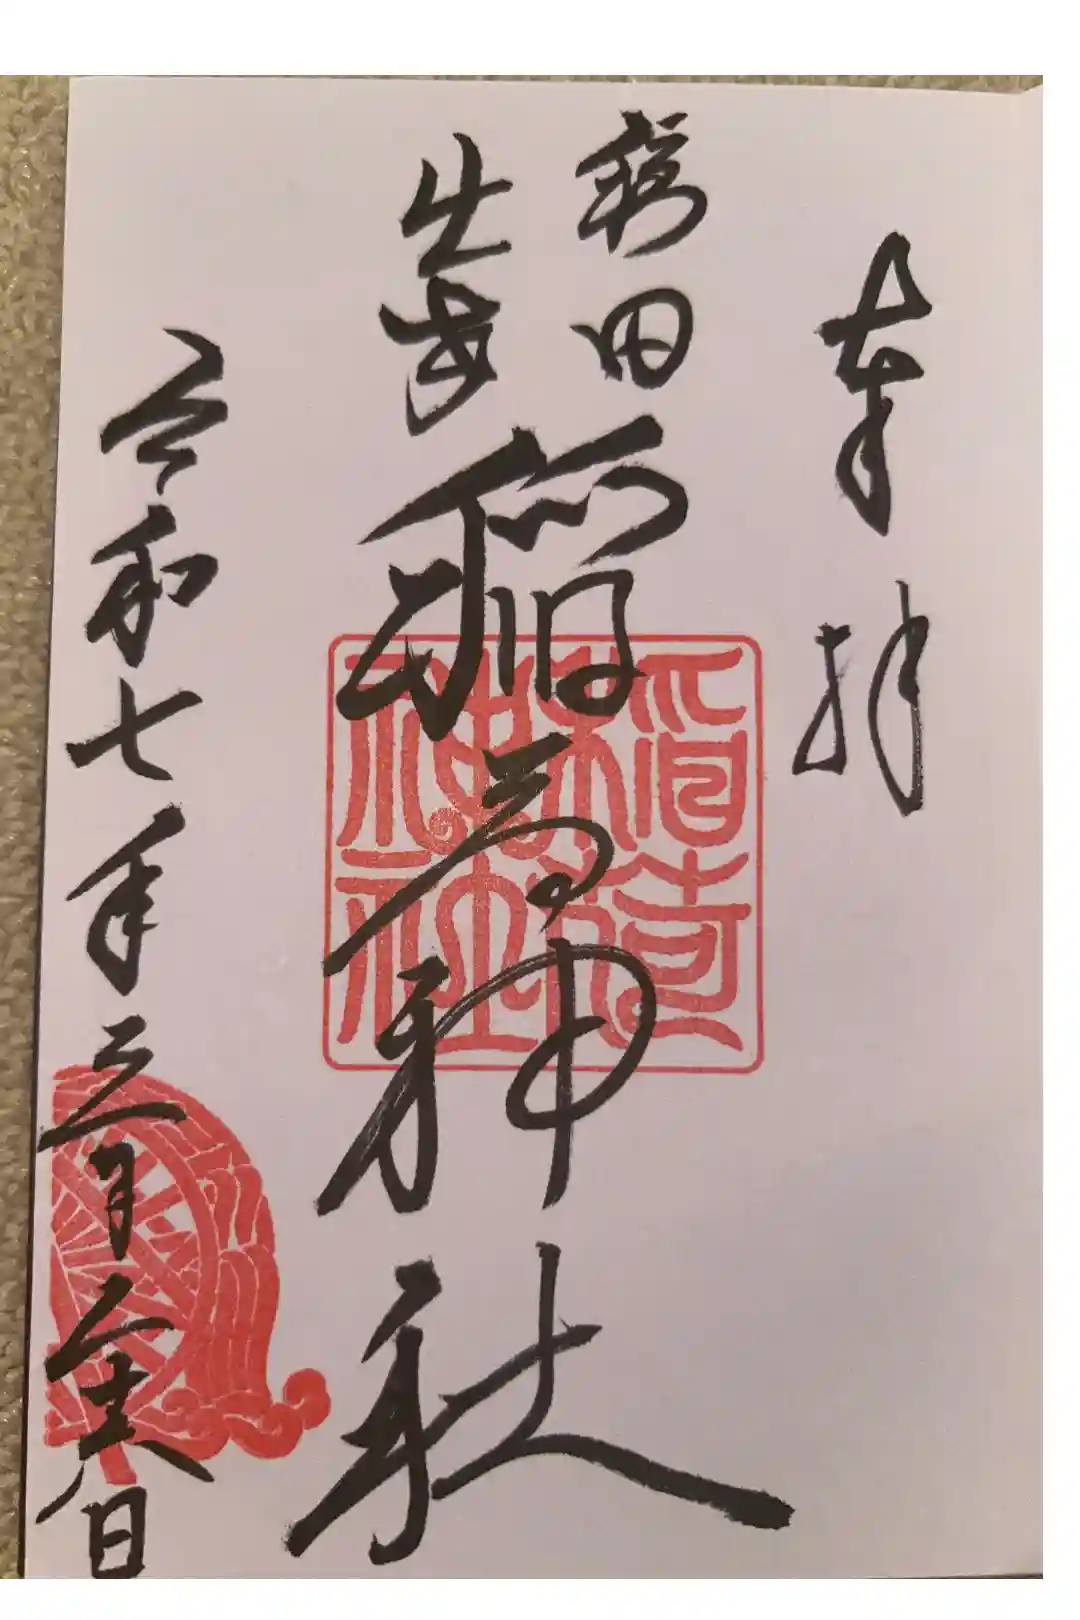 奉拝
田
出世
稲荷神社
令和七年三月二十八日
稲荷
神社